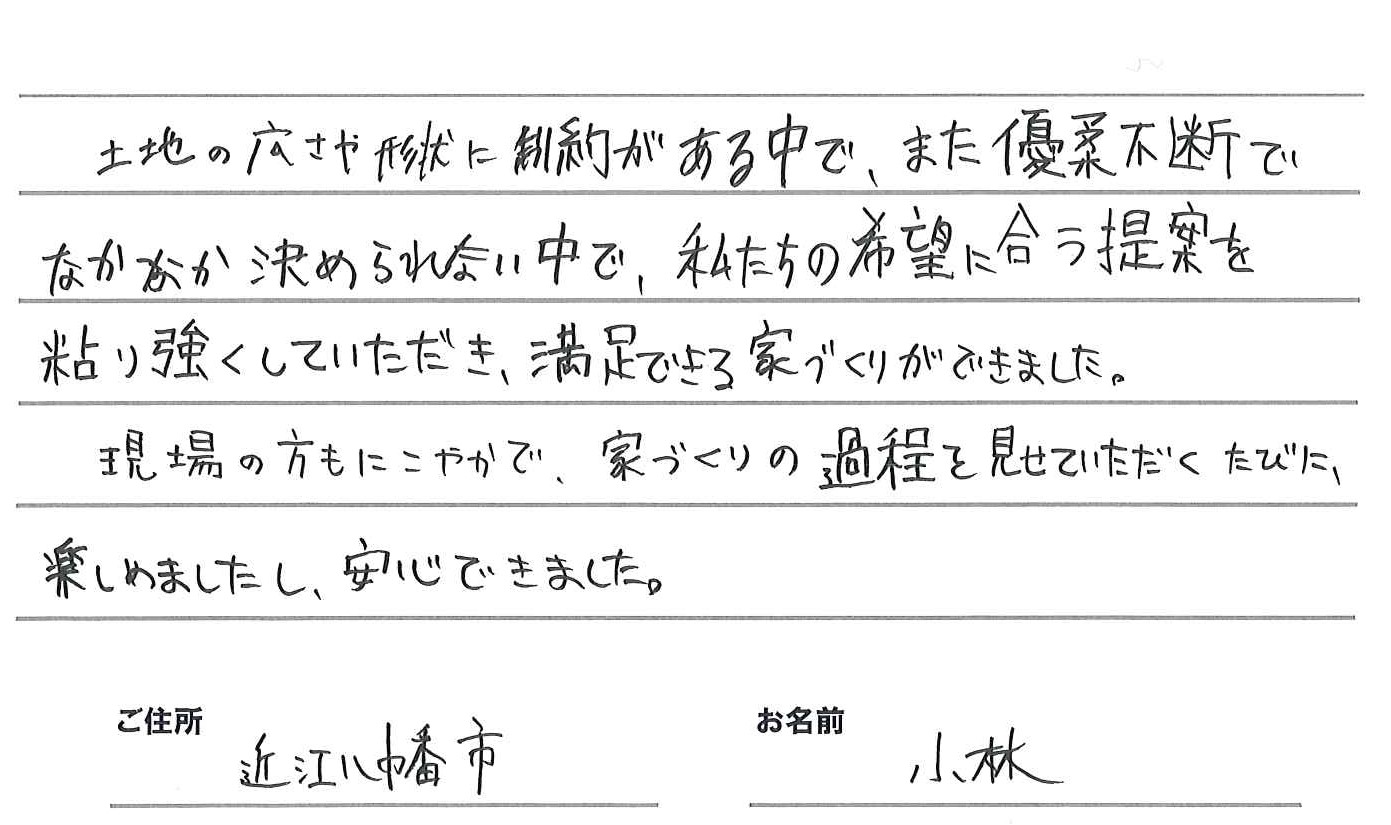 土地の広さや形状に制約がある中で、また優柔不断で
なかなか決められない中で、私たちの希望に合う提案を
粘り強くしていただき、満足できる家づくりができました。
現場の方もにこやかで、家づくりの過程を見せていただくたびに、
楽しめましたし、安心できました。
ご住所 近江八幡市 お名前 小林